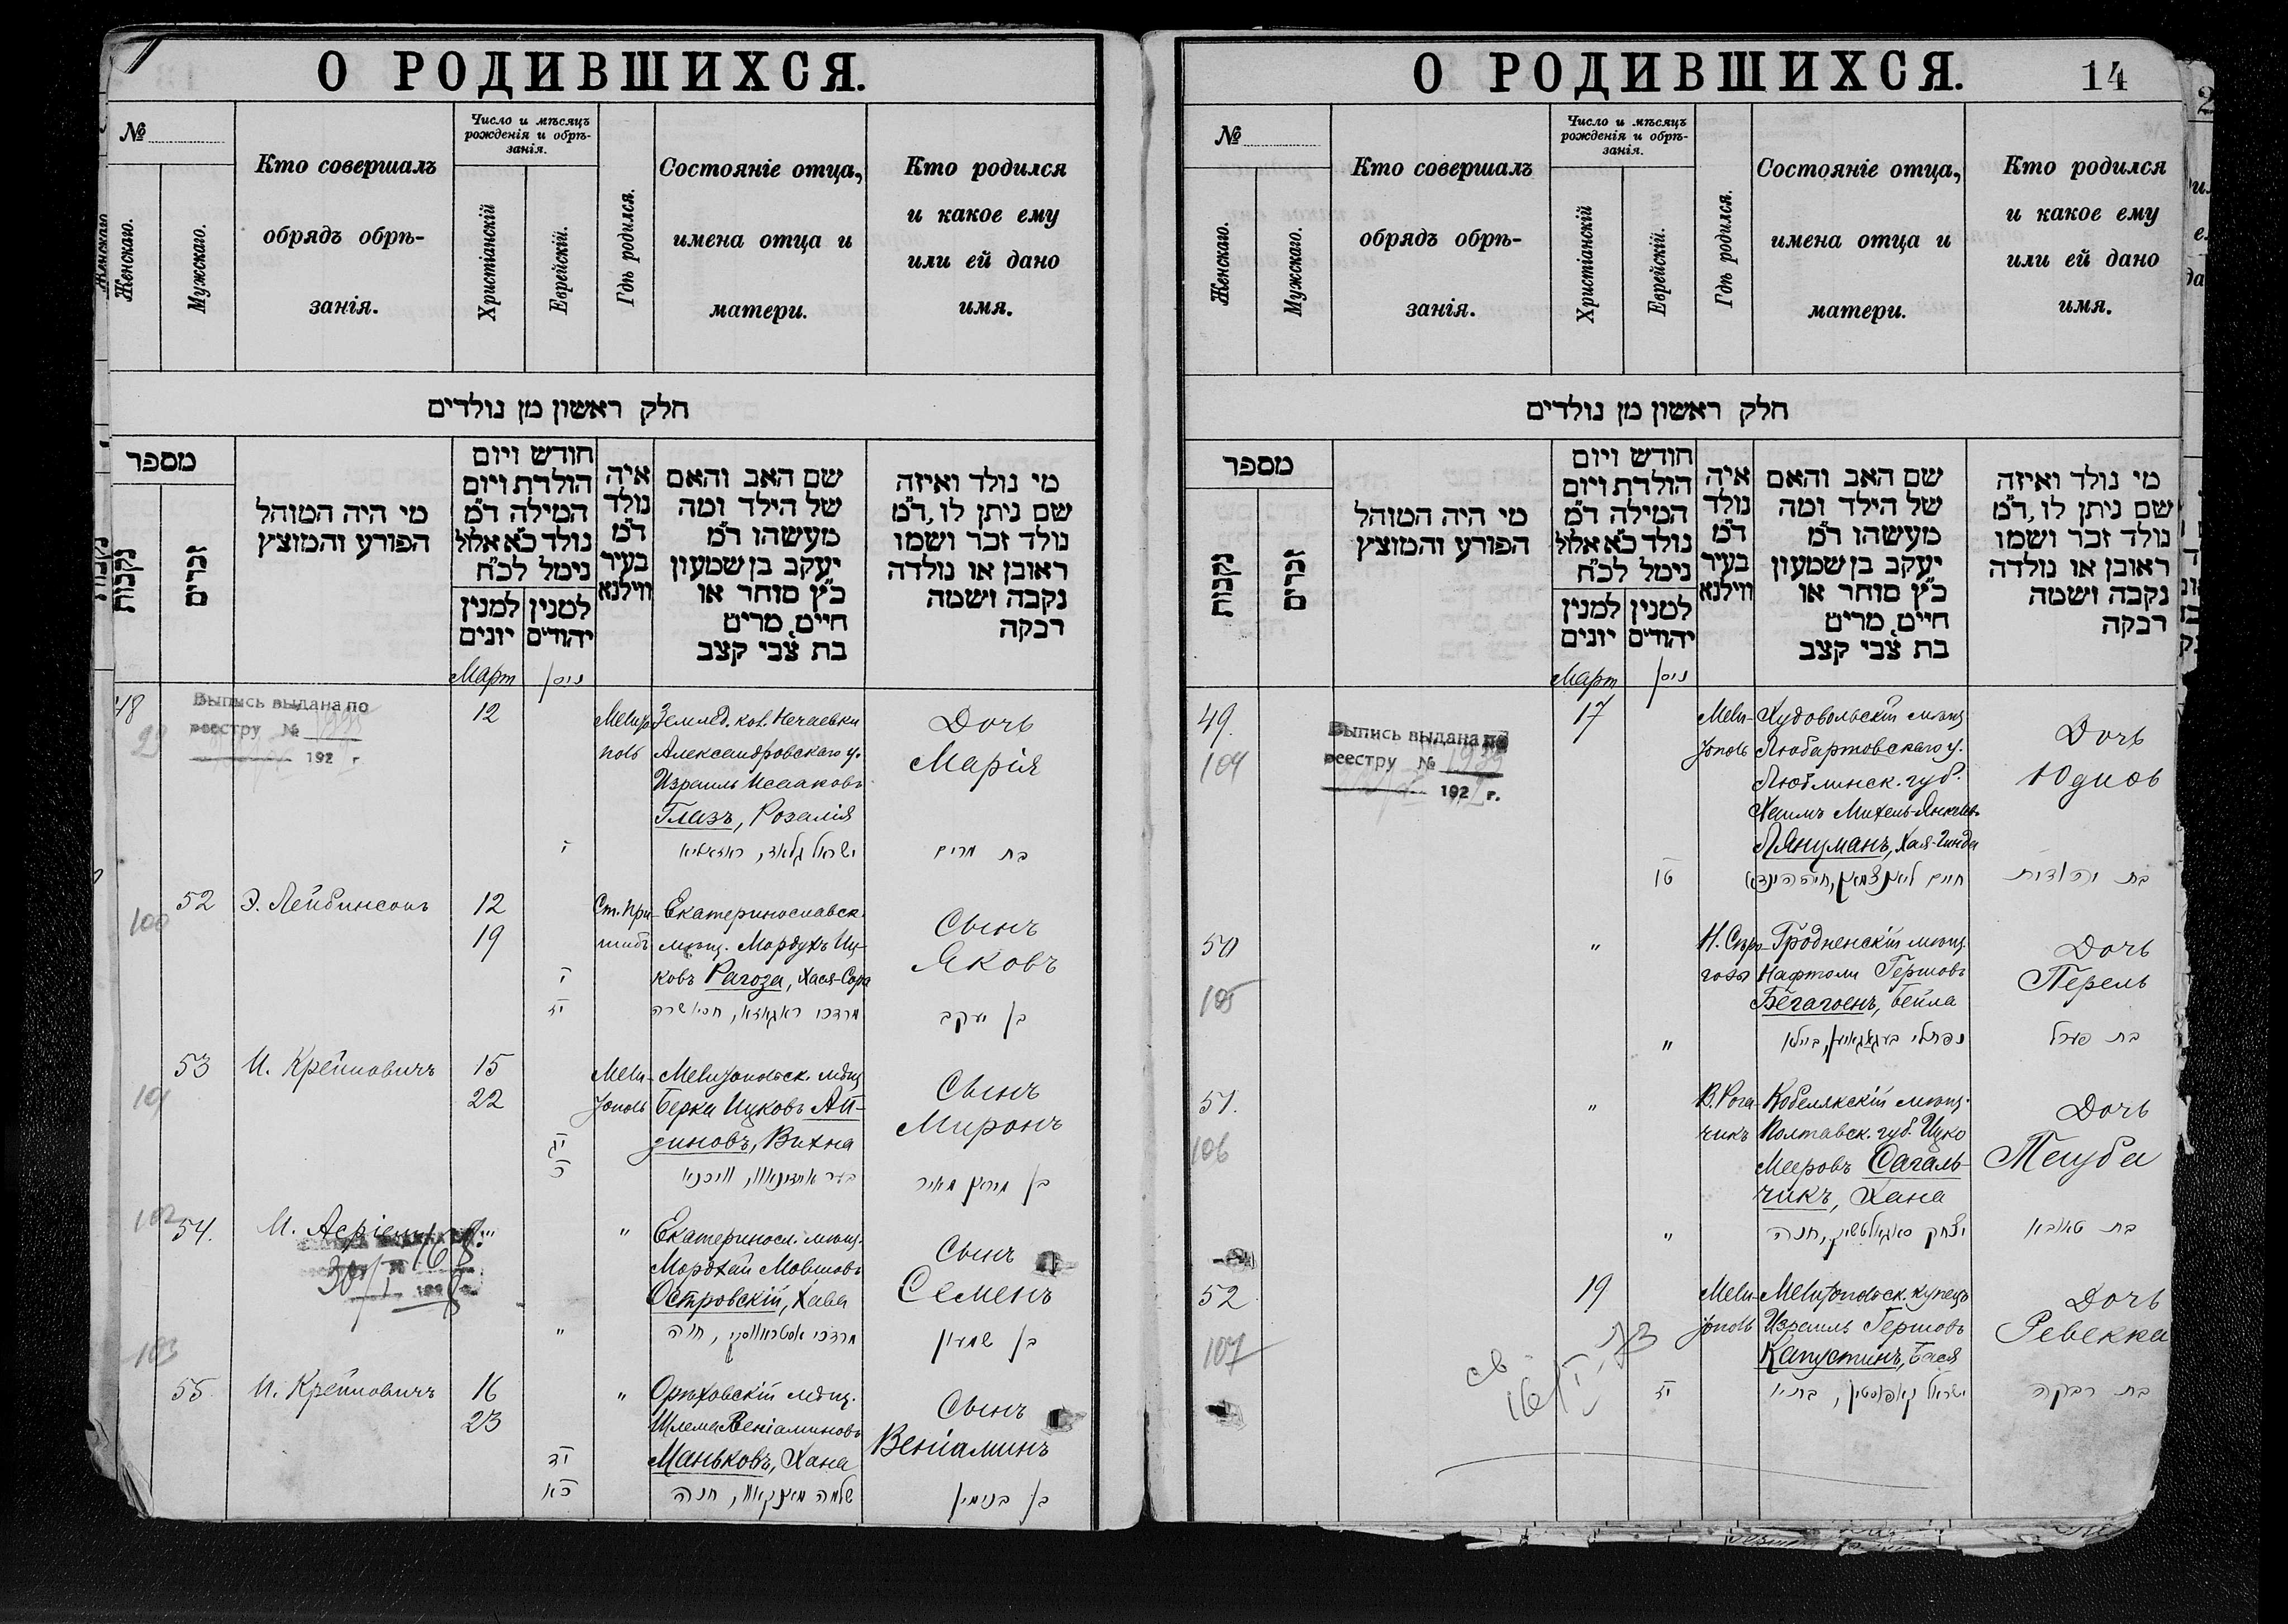 О РОДИВШИХСЯ.
№
Женскаго.
Мужскаго.
Кто совершалъ
обрядъ обрѣ-
занія.
Число и мѣсяцъ
рожденія и обрѣ-
занія.
Христіанскій
Еврейскій.
Гдѣ родился.
Состояніе отца,
имена отца и
матери.
Кто родился
и какое ему
или ей дано
имя.
חלק ראשון מן נולדים
מספר
נקבות
זכרים
מי היה המוהל
הפורע והמוצץ
חודש ויום
הולדת ויום
המילה ד״מ
נולד כ״א אלול
נימל לכ״ח
למנין
יונים
למנין
יהודים
איה
נולד
ד״מ
בעיר
ווילנא
שם האב והאם
של הילד ומה
מעשהו ד״מ
יעקב בן שמעון
כ״ץ סוחר או
חיים, מרים
בת צבי קצב
מי נולד ואיזה
שם ניתן לו, ד״מ
נולד זכר ושמו
ראובן או נולדה
נקבה ושמה
רבקה
Март
ניסן
48
Выпись выдана по
реестру №
192 г.
12
Мелито
поль
Землед. кол. Нечаевки
Александровскаго у.
Израиль Исааковъ
Глазъ, Розалія
Дочь
Марія
י
בת מרים
100
52
Э. Лейбинсонъ
12
19
Ст. При-
шибъ
Екатеринославск.
мѣщ. Мордухъ Иц-
ковъ Рагоза, Хася-Сора
Сынъ
Яковъ
י
יז
בן יעקב
101
53
И. Крейновичъ
15
22
Мели-
тополь
Мелитопольск. мѣщ.
Берка Ицковъ Ай-
диновъ, Вихна
Сынъ
Миронъ
יג
כ
בן מירון מאיר
102
54.
"
Екатеринosл. мѣщ.
Мордхай Мовшовъ
Островскій, Хава
Сынъ
Семенъ
"
בן שמעון
103
55
И. Крейновичъ
16
23
"
Орѣховскій мѣщ.
Шлема Веніаминовъ
Маньковъ, Хана
Сынъ
Веніаминъ
יד
כא
שלמה מאנקאוו, חנה
בן בנימין
О РОДИВШИХСЯ.
14
№
Женскаго.
Мужскаго.
Кто совершалъ
обрядъ обрѣ-
занія.
Число и мѣсяцъ
рожденія и обрѣ-
занія.
Христіанскій
Еврейскій.
Гдѣ родился.
Состояніе отца,
имена отца и
матери.
Кто родился
и какое ему
или ей дано
имя.
חלק ראשון מן נולדים
מספר
נקבות
זכרים
מי היה המוהל
הפורע והמוצץ
חודש ויום
הולדת ויום
המילה ד״מ
נולד כ״א אלול
נימל לכ״ח
למנין
יונים
למנין
יהודים
איה
נולד
ד״מ
בעיר
ווילנא
שם האב והאם
של הילד ומה
מעשהו ד״מ
יעקב בן שמעון
כ״ץ סוחר או
חיים, מרים
בת צבי קצב
מי נולד ואיזה
שם ניתן לו, ד״מ
נולד זכר ושמו
ראובן או נולדה
נקבה ושמה
רבקה
Март
ניסן
49.
104
Выпись выдана по
реестру №
192 г.
17
Мели-
тополь
Худовольскій мѣщ.
Любартовскаго у.
Люблинск. губ.
Хаимъ Михель Янкелев.
Лянцманъ, Хая-Гинда
Дочь
Юдиѳь
טו
בת יהודית
50
105
"
Н. Сѣро-
гозы
Гродненскій мѣщ.
Нафтоли Гершовъ
Бегагоенъ, Бейла
Дочь
Перель
"
בת פערל
51.
106
"
В. Рога-
чикъ
Кобелякскій мѣщ.
Полтавск. губ. Ицко
Мееровъ Сагаль-
чикъ, Хана
Дочь
Тауба
"
יצחק סאגאלטשיק, חנה
בת טאובא
52
107
19
Мели-
тополь
Мелитопольск. купецъ
Израиль Гершовъ
Капустинъ, Бася
Дочь
Ревекка
יז
ישראל קאפוסטין, בתיה
בת רבקה